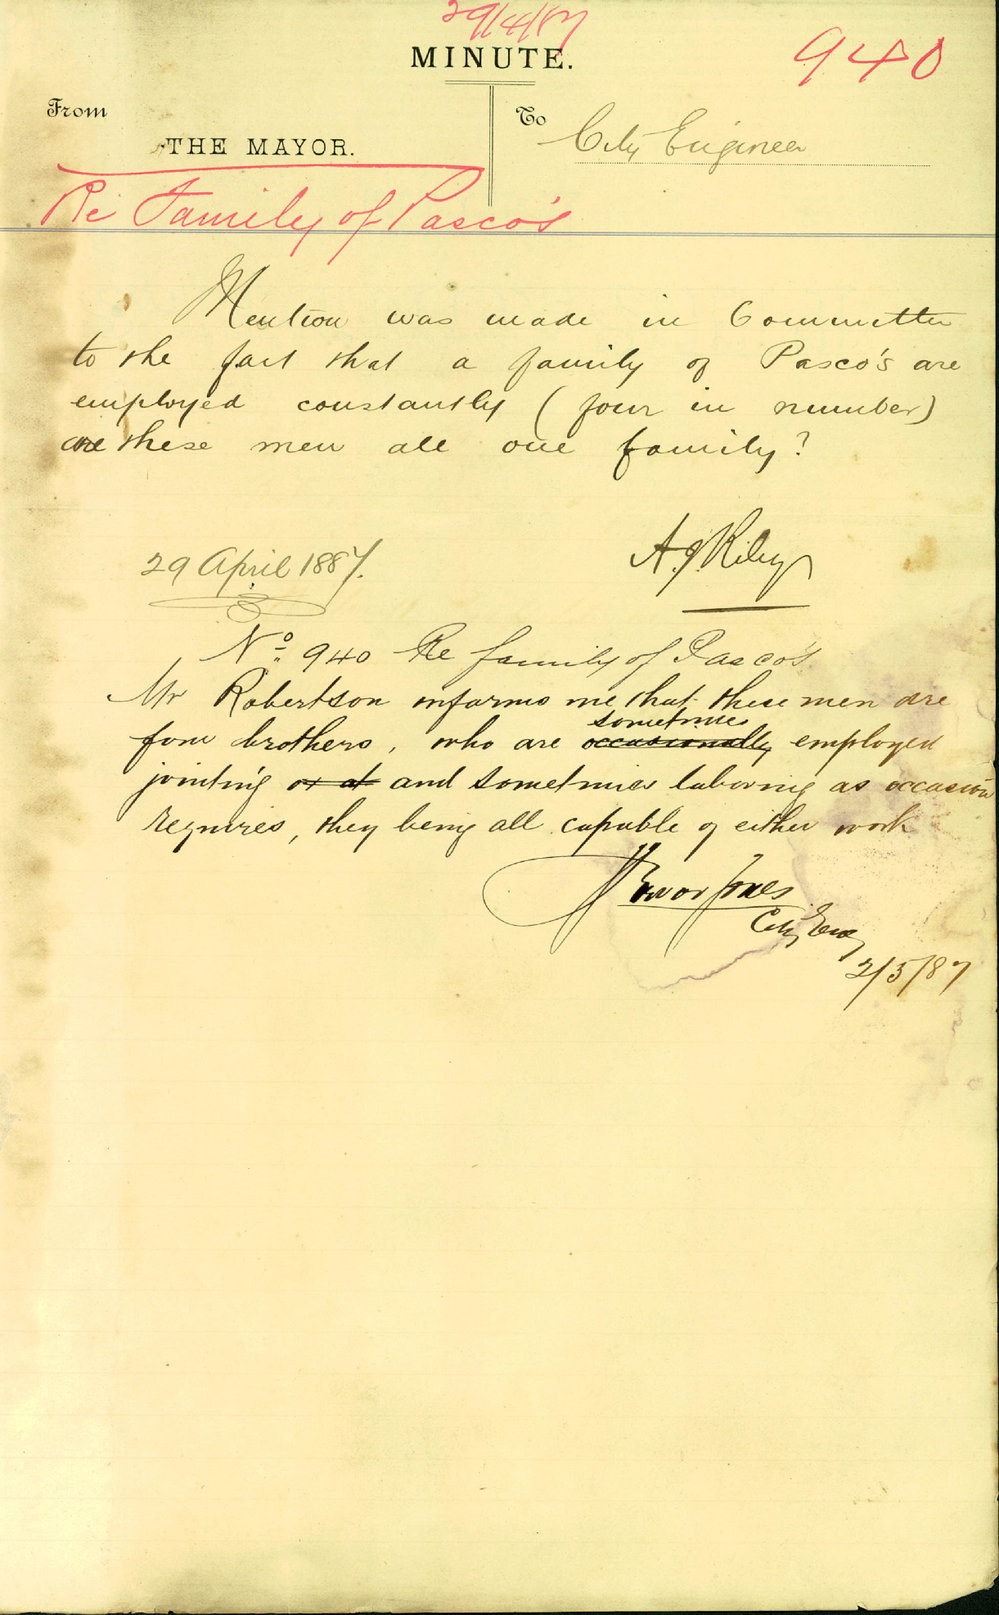 29/4/87
MINUTE.
940
From
THE MAYOR.
To
City Engineer
Re Family of Pasco's
Mention was made in Committee
to the fact that a family of Pasco's are
employed constantly (four in number)
are these men all one family?
A.J. Riley
29 April 1887.
No. 940 Re family of Pasco's
Mr Robertson informs me that these men are
four brothers, who are occasionally sometimes employed
jointing or at and sometimes laboring as occasion
requires, they being all capable of either work
Trevor Jones
City Eng
2/5/87